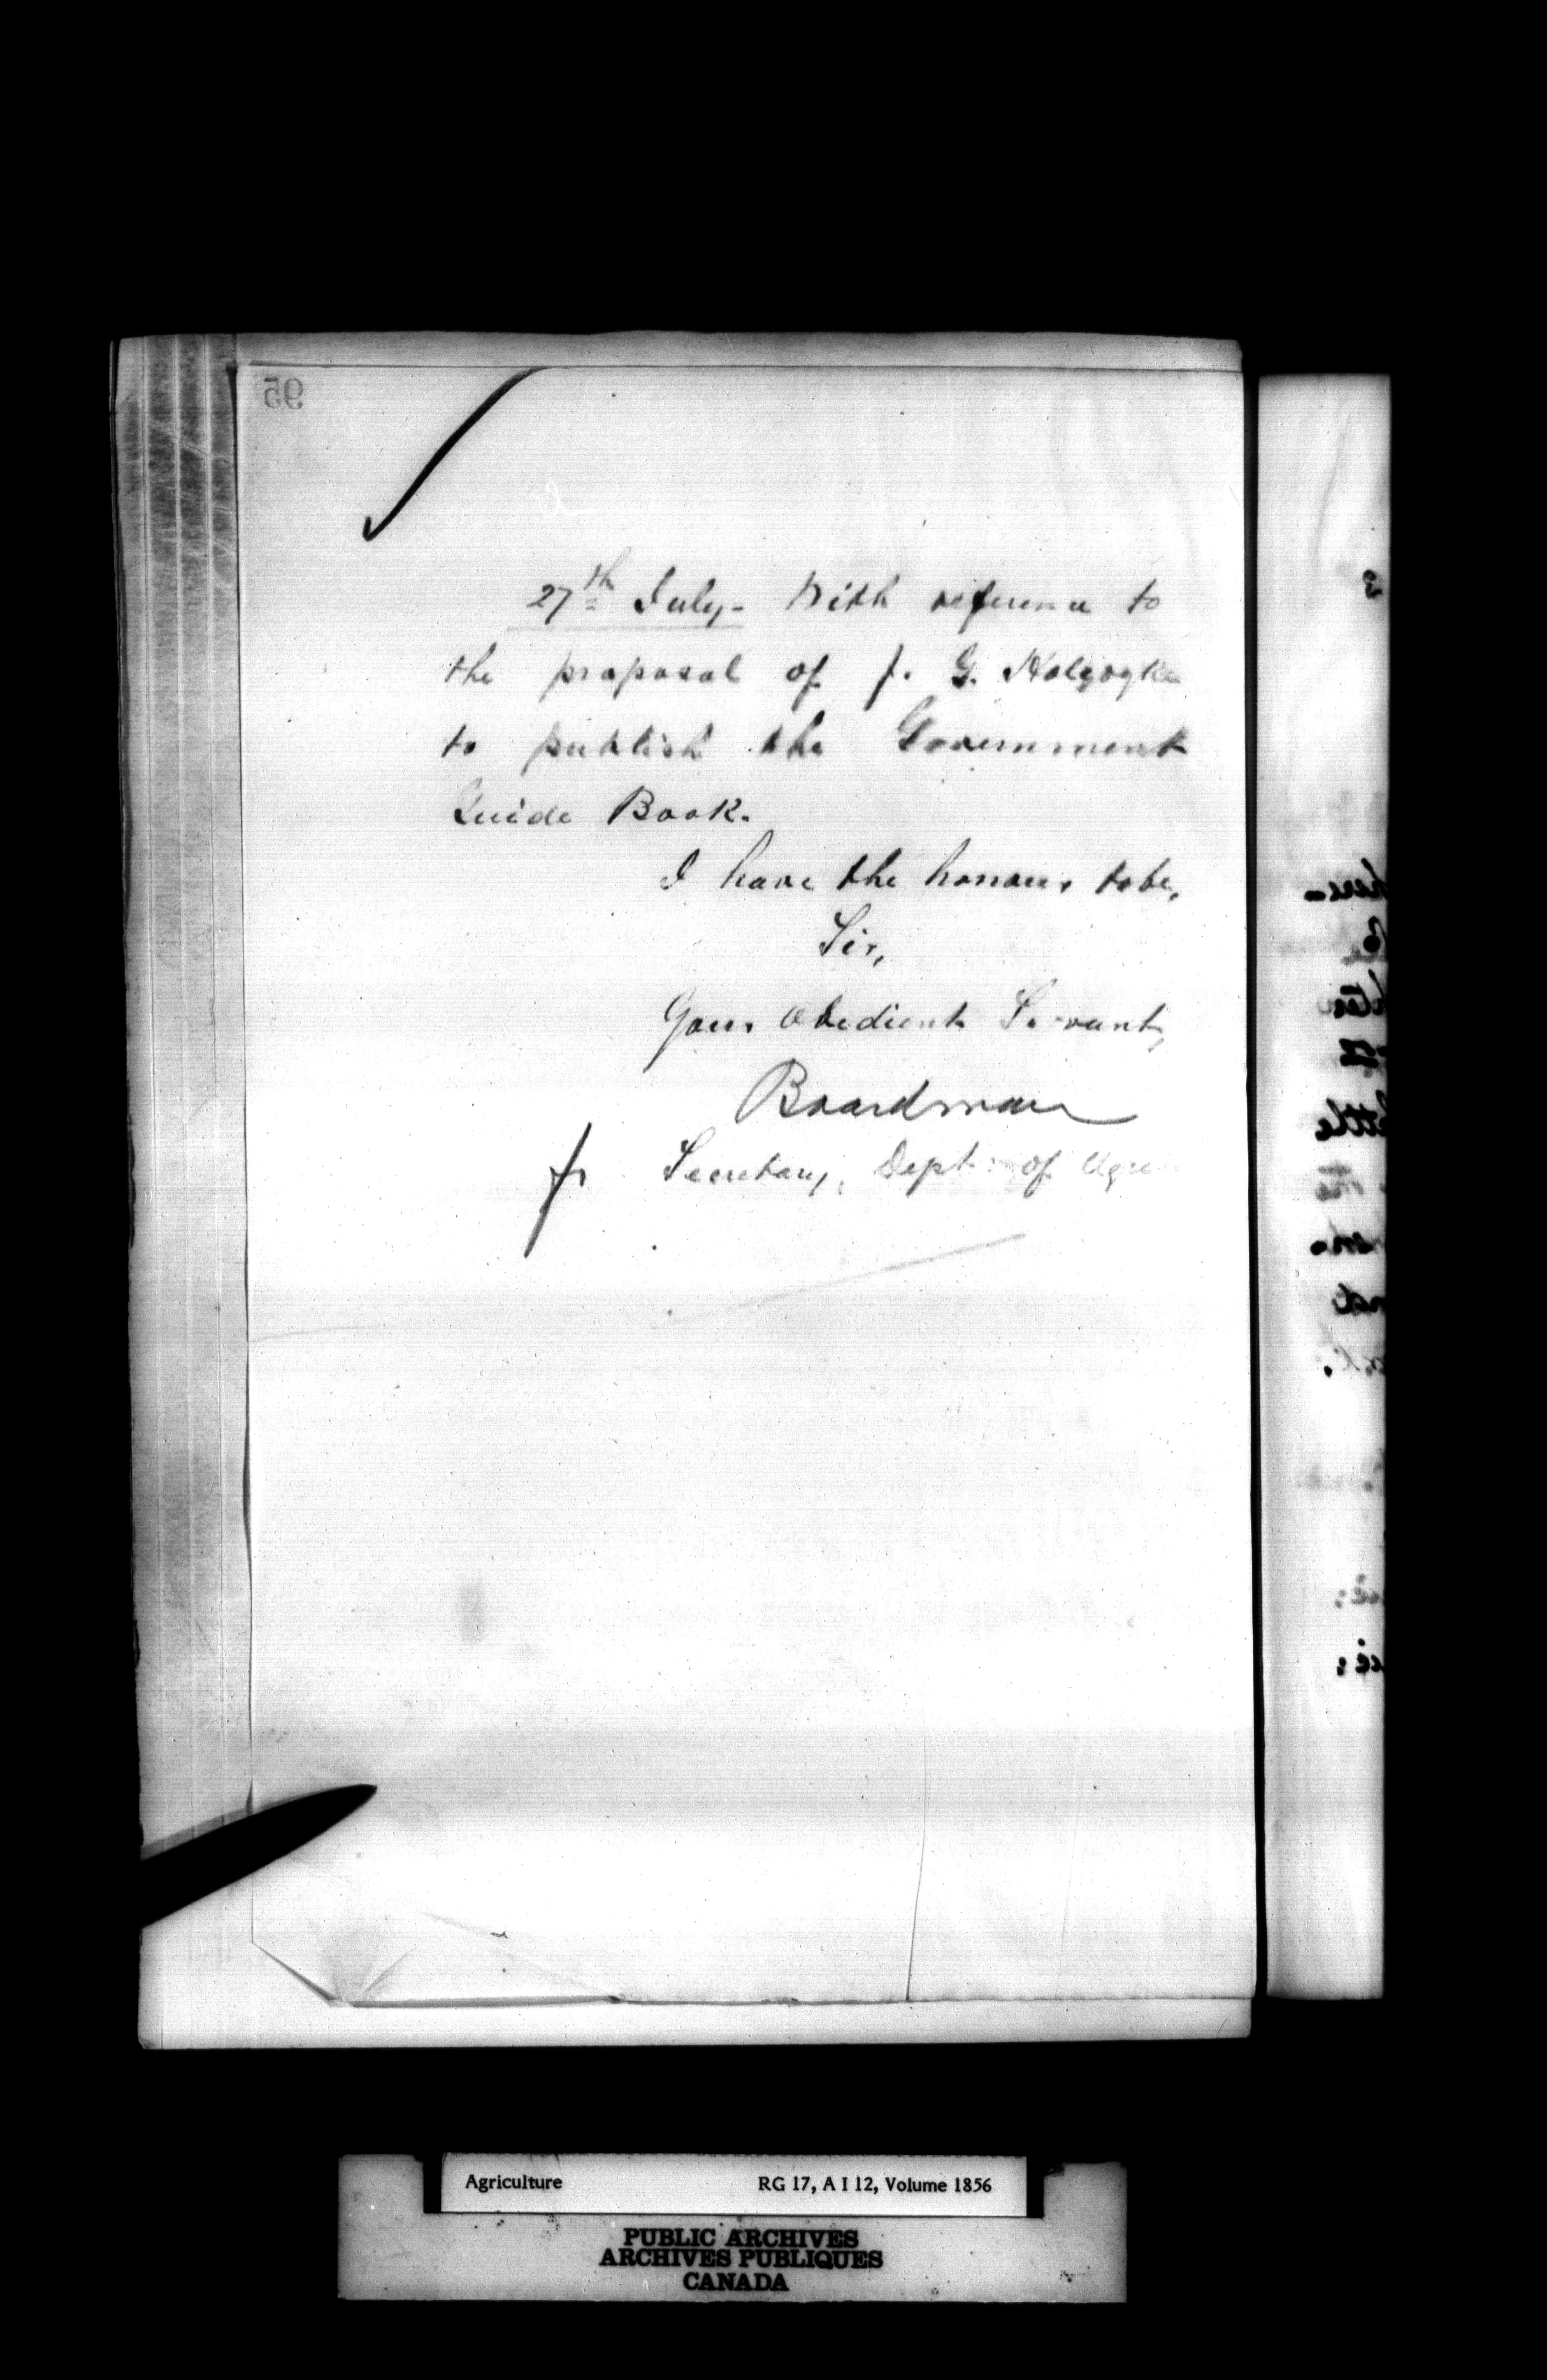 95
27th July - With reference to
the proposal of J. G.
to publish the Government
Guide Book.
I have the honour to be,
Sir,
Your Obedient Servant,
Boardman
fr Secretary, Dept. of Agri
Agriculture RG 17, A I 12, Volume 1856
PUBLIC ARCHIVES
ARCHIVES PUBLIQUES
CANADA